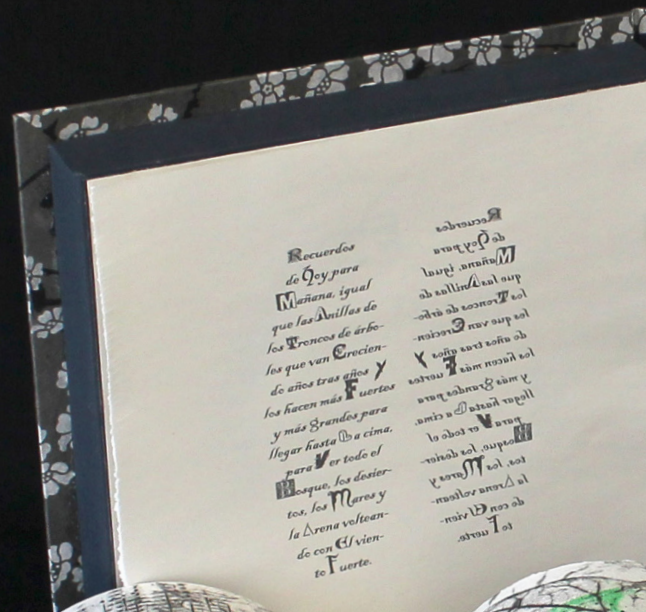 Recuerdos
de Hoy para
Mañana, igual
que las Anillas de
los Troncos de árbo-
les que van Crecien-
de años tras años Y
los hacen más Fuertes
y más Grandes para
llegar hasta La cima,
para Ver todo el
Bosque, los desier-
tos, los Mares y
la Arena voltean-
do con El vien-
to Fuerte.
Recuerdos
de Hoy para
Mañana, igual
que las Anillas de
los Troncos de árbo-
les que van Crecien-
de años tras años Y
los hacen más Fuertes
y más Grandes para
llegar hasta La cima,
para Ver todo el
Bosque, los desier-
tos, los Mares y
la Arena voltean-
de con El vien-
to Fuerte.